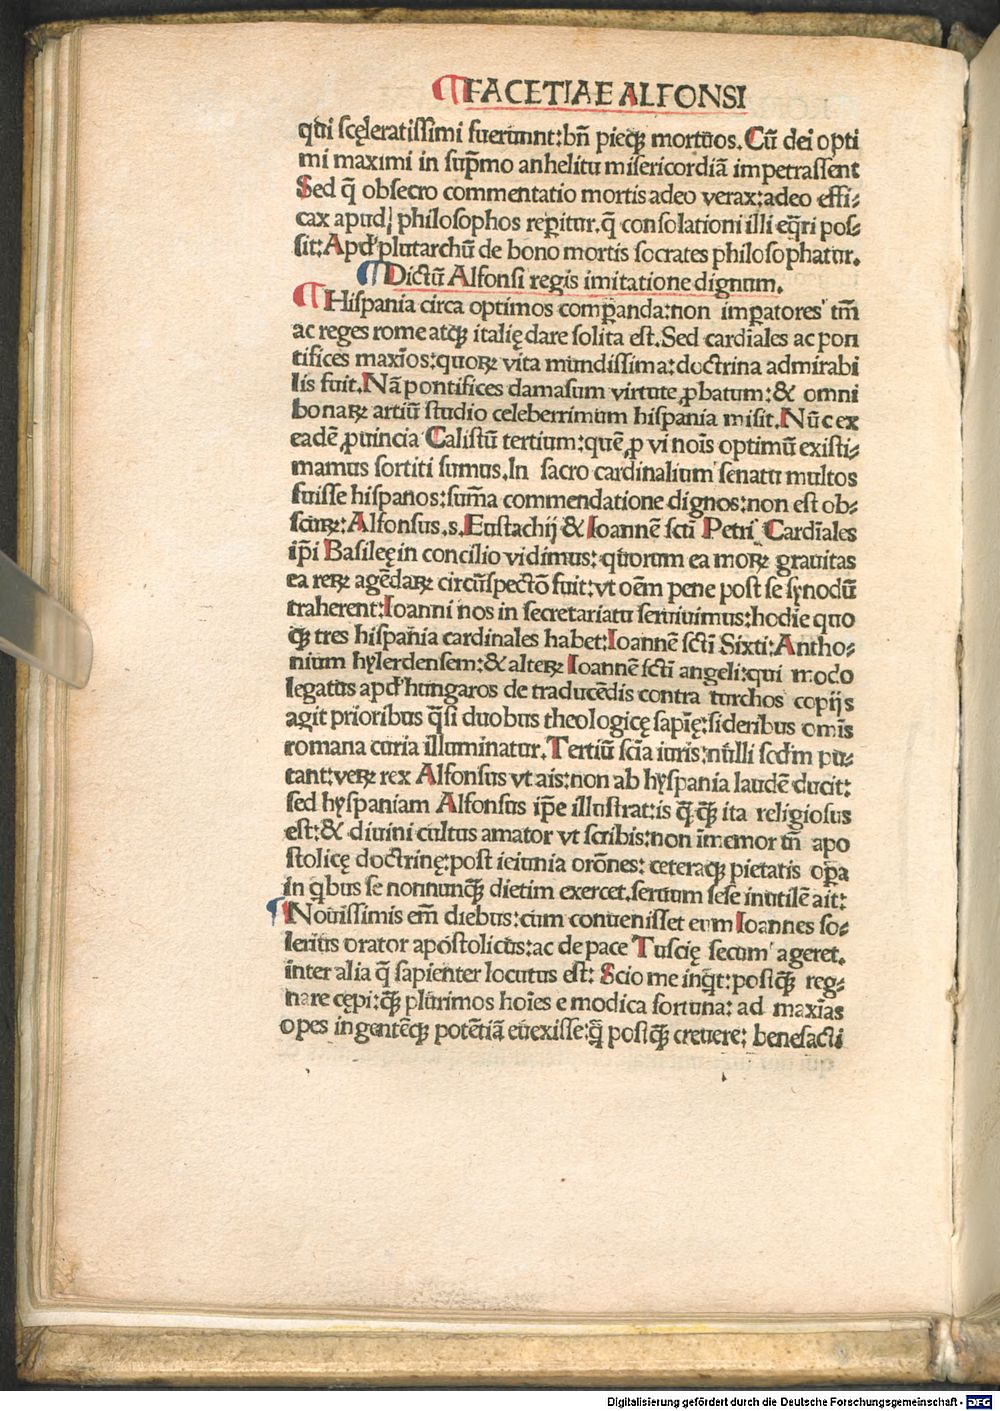 ¶FACETIAE ALFONSI
qui scęleratissimi fuerunnt:bn̄ pieqꝫ mortuos.Cū dei opti
mi maximi in sup̄mo anhelitu misericordiā impetrassent
Sed q̄ obsecro commentatio mortis adeo verax:adeo effi⸗
cax apud philosophos reꝑitur.q̄ consolationi illi eq̄ri pos⸗
sit:Apd' plutarchū de bono mortis socrates philosophatur.
¶Dictū Alfonsi regis imitatione dignum.
¶Hispania circa optimos comꝑanda:non imꝑatores tm̄
ac reges rome atqꝫ italię dare solita est.Sed cardīales ac pon
tifices maxīos:quoꝝ vita mundissima:doctrina admirabi
lis fuit.Nā pontifices damasum virtute ꝓbatum:& omni
bonaꝝ artiū studio celeberrimum hispania misit.Nūc ex
eadē ꝓuincia Calistū tertium:quē ꝓ vi nōis optimū existi⸗
mamus sortiti sumus.In sacro cardinalium senatu multos
fuisse hispanos:sūma commendatione dignos:non est ob⸗
scuꝝ:Alfonsus.s.Eustachij & Ioannē scti Petri Cardīales
ip̄i Basileę in concilio vidimus:quorum ea moꝝ grauitas
ea reꝝ agēdaꝝ circūspectō fuit:vt oēm pene post se sỹnodū
traherent:Ioanni nos in secretariatu seruiuimus:hodie quo
qꝫ tres hispania cardinales habet:Ioannē scti Sixti:Antho⸗
nium hylerdensem:& alteꝝ Ioannē scti angeli:qui modo
legatus apd' hungaros de traducēdis contra turchos copijs
agit prioribus q̄si duobus theologicę sapīę:sideribus omīs
romana curia illuminatur.Tertiū scīa iuris:nulli scd̄m pu⸗
tant:veꝝ rex Alfonsus vt ais:non ab hyspania laudē ducit:
sed hyspaniam Alfonsus ip̄e illustrat:is q̄qꝫ ita religiosus
est:& diuini cultus amator vt scribis:non īmemor tn̄ apo
stolicę doctrinę:post ieiunia orōnes: ceteraqꝫ pietatis oꝑa
in qbus se nonnunqꝫ dietim exercet.seruum sese inutilē ait:
¶Nouissimis em̄ diebus:cum conuenisset eum Ioannes so⸗
lerius orator apostolicus:ac de pace Tuscię secum ageret.
inter alia q̄ sapienter locutus est: Scio me inq̄t:postqꝫ reg⸗
nare cępi:qꝫ plurimos hoīes e modica fortuna: ad maxīas
opes ingentēqꝫ potētiā euexisse:q̄ postqꝫ creuere: benefacti
Digitalisierung gefördert durch die Deutsche Forschungsgemeinschaft - DFG